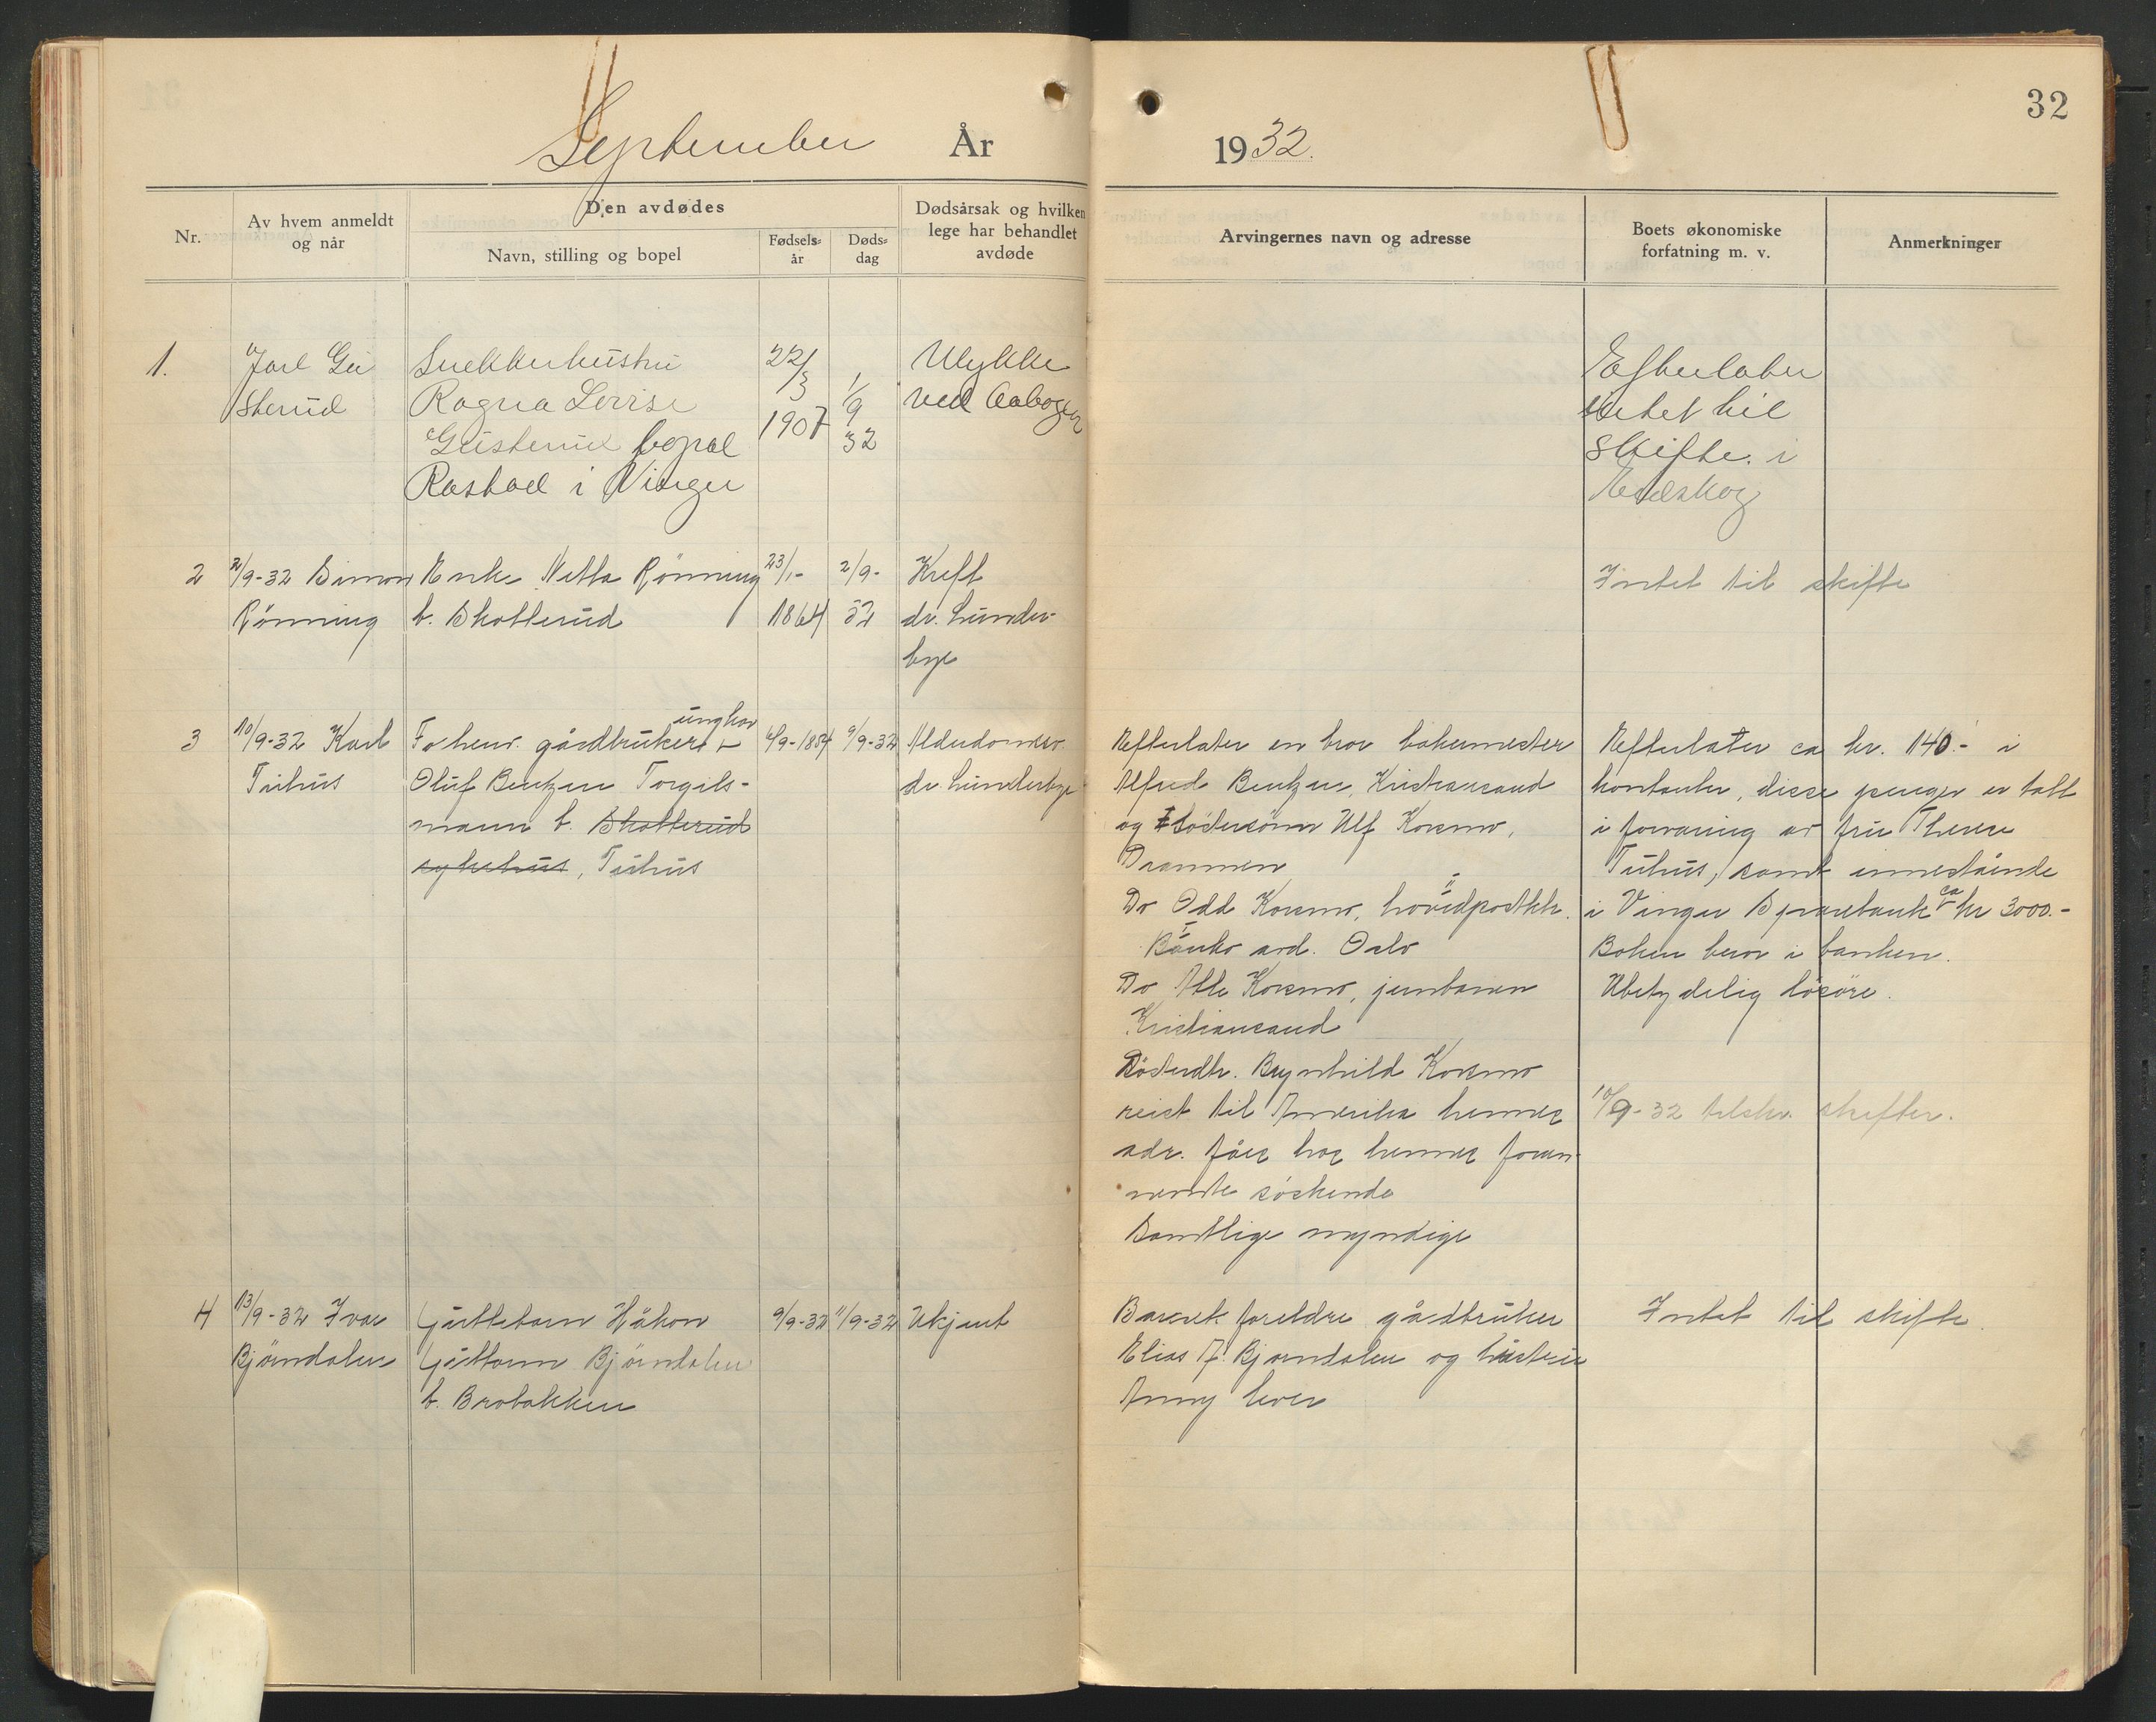 32
September År 1932.
Nr.
Av hvem anmeldt
og når
Den avdødes
Navn, stilling og bopel
Fødsels-
år
Døds-
dag
Dødsårsak og hvilken
lege har behandlet
avdøde
Arvingernes navn og adresse
Boets økonomiske
forfatning m. v.
Anmerkninger
1.
Jarl Gu
sterud
Snekkerhustru
Ragna Lovise
Gusterud bopæl
Rastad i Vinger
22/3
1907
1/9
32
Ulykke
ved Aabogen
Efterlater
intet til
skifte. i
Eidskog
2
2/9-32 Simon
Rønning
Enke Netta Rønning
b. Skotterud
23/1-
1864
2/9-
32
Kreft
dr. Lunder-
bye
Intet til skifte
3
10/9-32 Karl
Tuhus
ungkar
Forhenv. gårdbruker
Oluf Bentzen Torgils-
mann b. Skotterud
sykehus, Tuhus
9/9-32
Alderdomssv.
dr. Lunderbye
Efterlater en bror bakermester
Alfred Bentzen, Kristiansand
og Søstersønn Ulf Korsmo,
Drammen
Do Odd Korsmo, hovedpostktr.
Banko avd. Oslo
Do Atle Korsmo, jernbanen
Kristiansand
Søsterdtr. Brynhild Korsmo
reist til Amerika hennes
adr. fåes hos hennes foran-
nevnte søskende
Samtlige myndige
Efterlater ca kr. 140.- i
kontanter, disse penger er tatt
i forvaring av fru Therese
Tuhus, samt innestående
i Vinger Sparebank ca kr 3000.-
Boken beror i banken.
Ubetydelig løsøre.
10/9-32 tilskr. skifter.
4
13/9-32 Ivar
Bjørndalen
Guttebarn Håkon
Guttorm Bjørndalen
b. Brobakken
9/9-32
11/9-32
Ukjent
Barnets foreldre gårdbruker
Elias A. Bjørndalen og hustru
Anny lever
Intet til skifte.